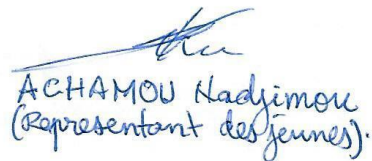 ACHAMOU Hadjimou
(Representant des jeunes).